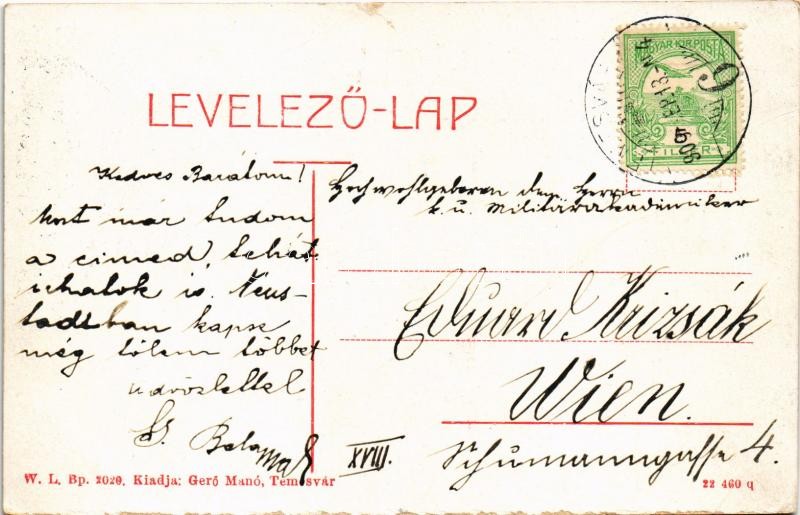 LEVELEZŐ-LAP
MAGYAR KIR. POSTA
5
FILLÉR
Kedves Barátom!
most már tudom
a cimed, tehát
irhatok is. Neus-
tadtban kapsz
még tőlem többet
üdvözlettel
Bela
Hochwohlgeboren dem Herrn
k. u. Militärakademiker
Eduard Krizsák
Wien.
XVIII. Schumanngasse 4.
W. L. Bp. 2020. Kiadja: Gerő Manó, Temesvár
22 460 q